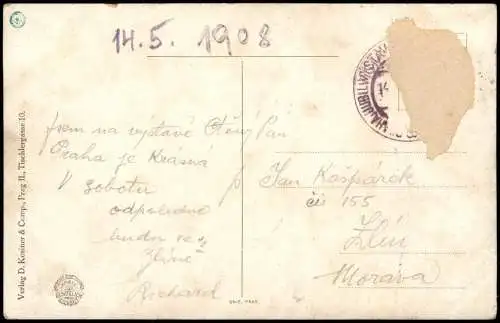 14.5. 1908
jsem na výstavě
Praha je krásná
V sobotu
odpoledne
budu ve
Zlíně
Richard
Pán
Jan Košpárek
čís 155
Zlín
Morava
Verlag D. Kosiner & Comp., Prag II., Tischlergasse 10.